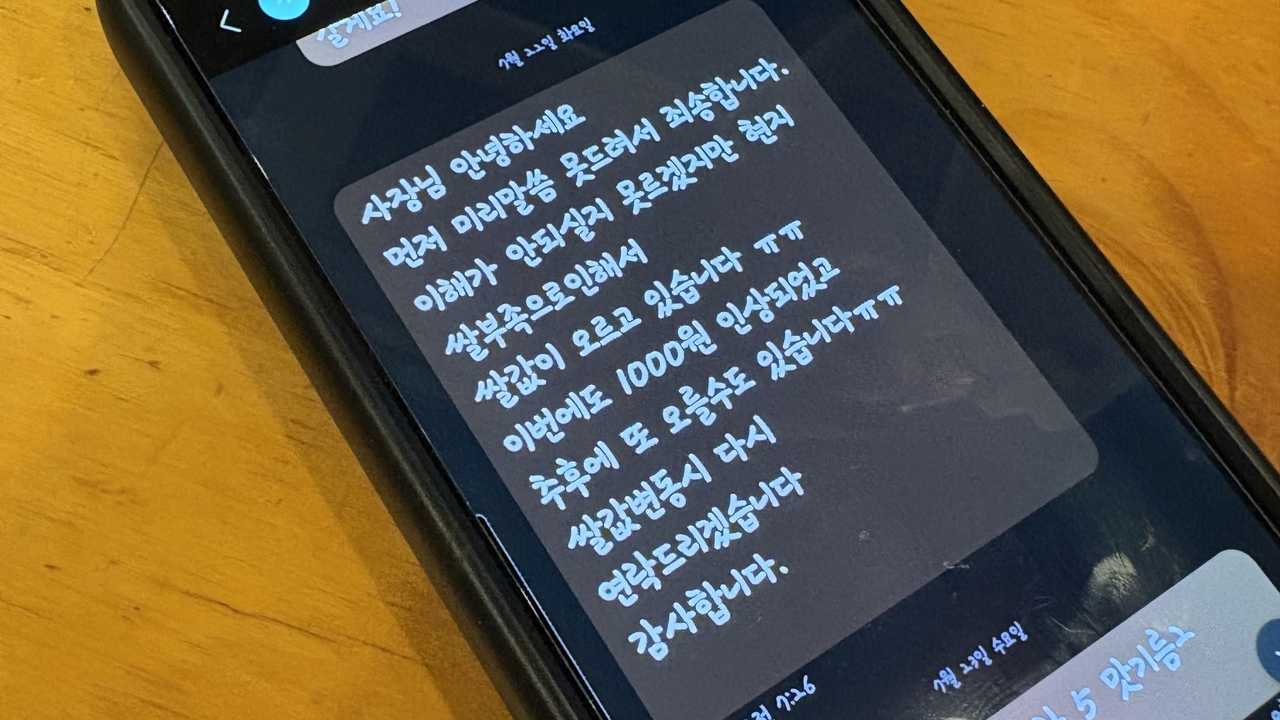 살게요!
7월 22일 화요일
사장님 안녕하세요
먼저 미리말씀 못드려서 죄송합니다.
이해가 안되실지 못르겠지만 현지
쌀부족으로인해서
쌀값이 오르고 있습니다 ㅠㅠ
이번에도 1000원 인상되었고
추후에 또 오를수도 있습니다ㅠㅠ
쌀값변동시 다시
연락드리겠습니다
감사합니다.
7:26
7월 23일 수요일
5 맛기름2